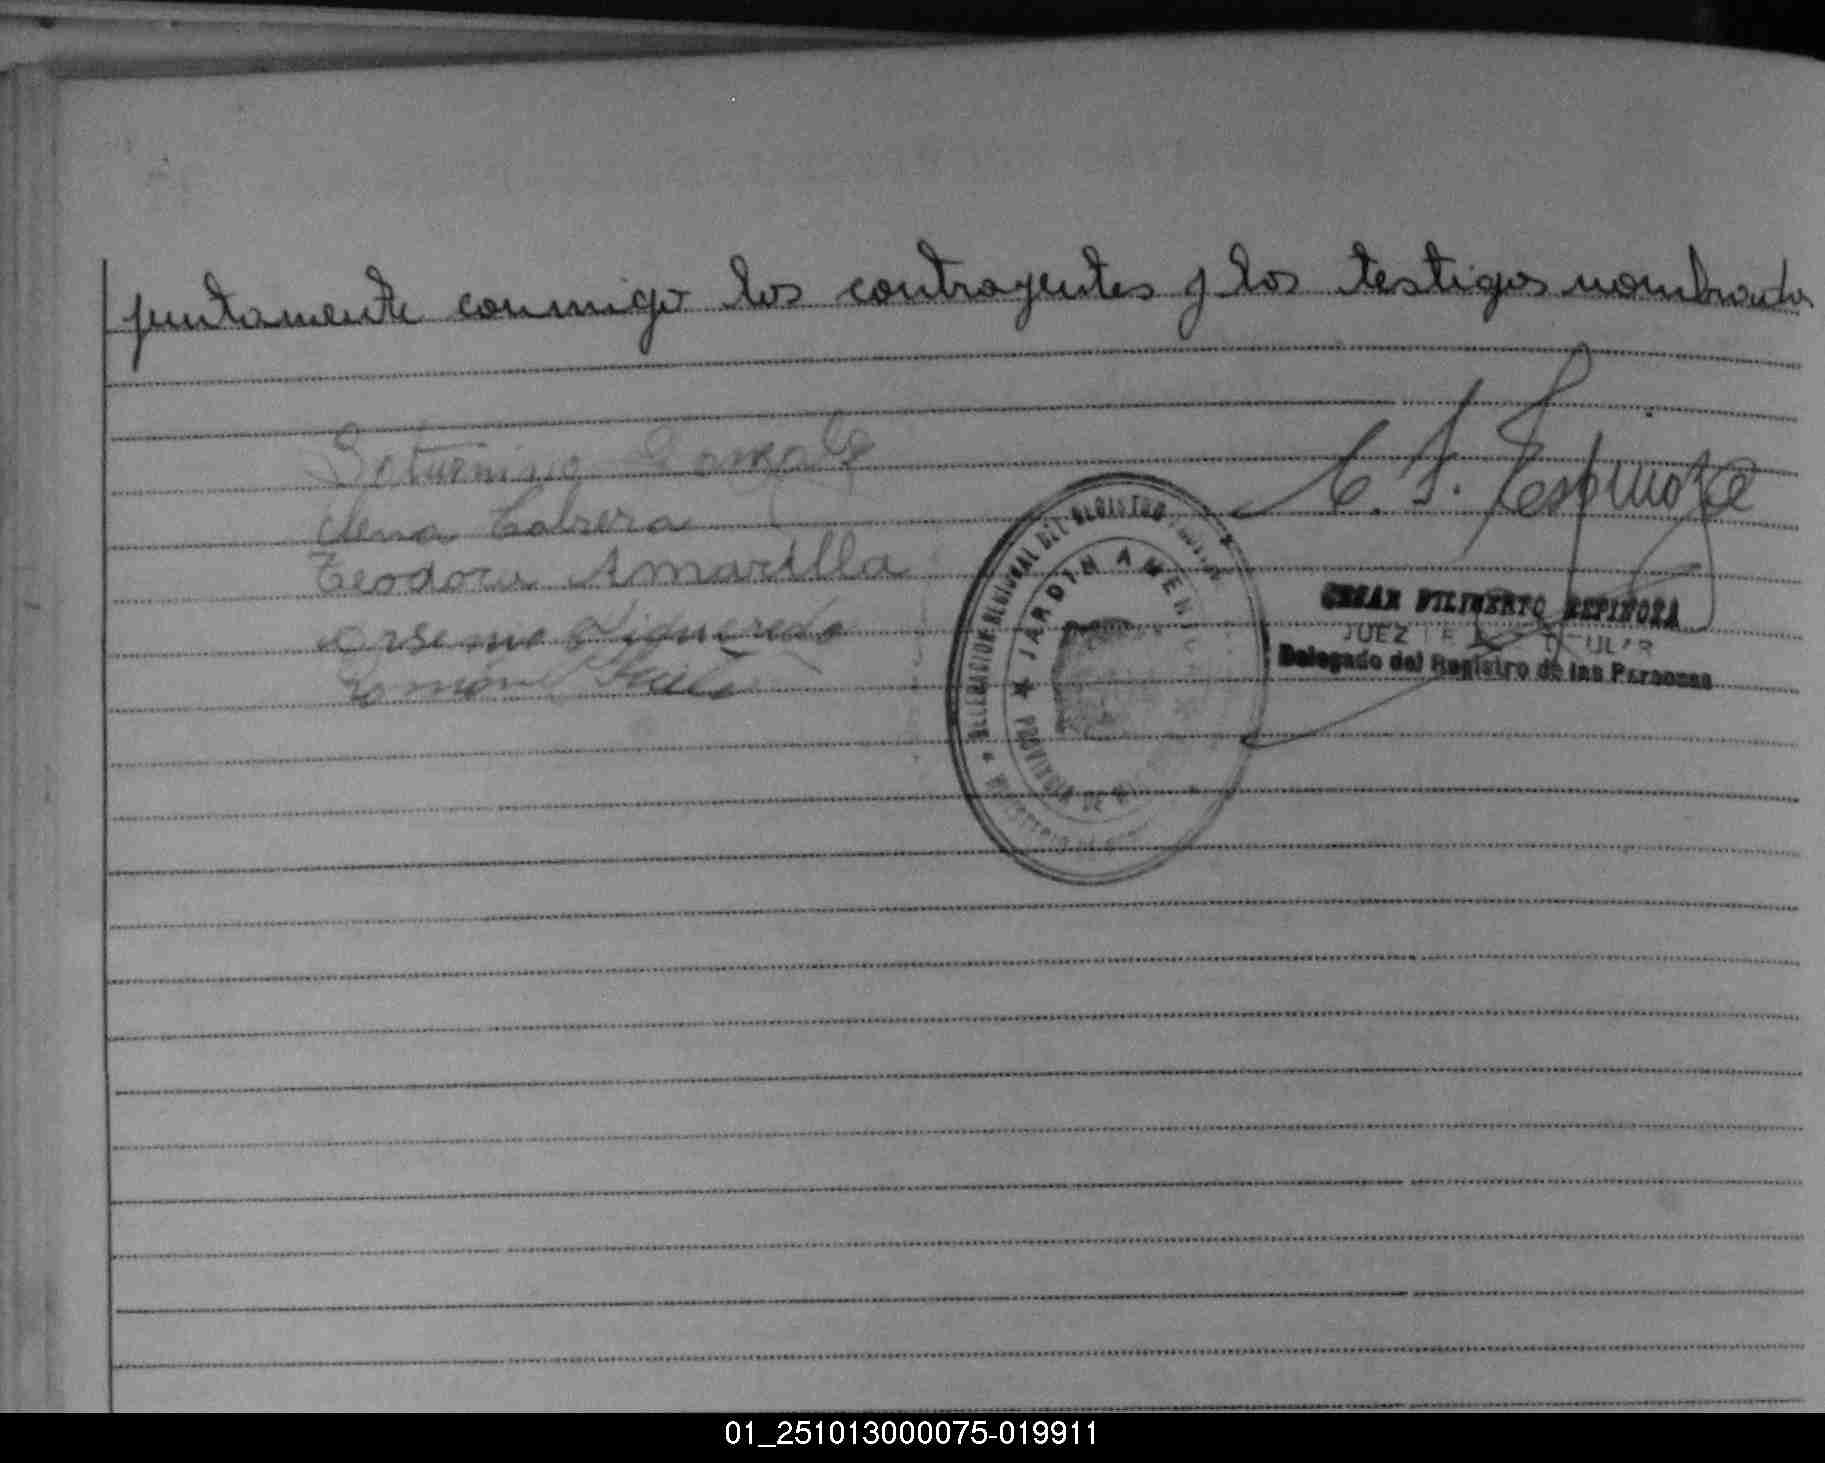 juntamente conmigo los contrayentes y los testigos nombrados
Saturnino Gonzalez
Elena Cabrera
Teodora Amarilla
Arsenio Figueredo
Ramón
C. F. Espinoza
CESAR FILIBERTO ESPINOZA
JUEZ DE
Delegado del Registro de las Personas
DELEGACION REGIONAL DEL REGISTRO
★ JARDIN AMERICA
PROVINCIA DE
01_251013000075-019911